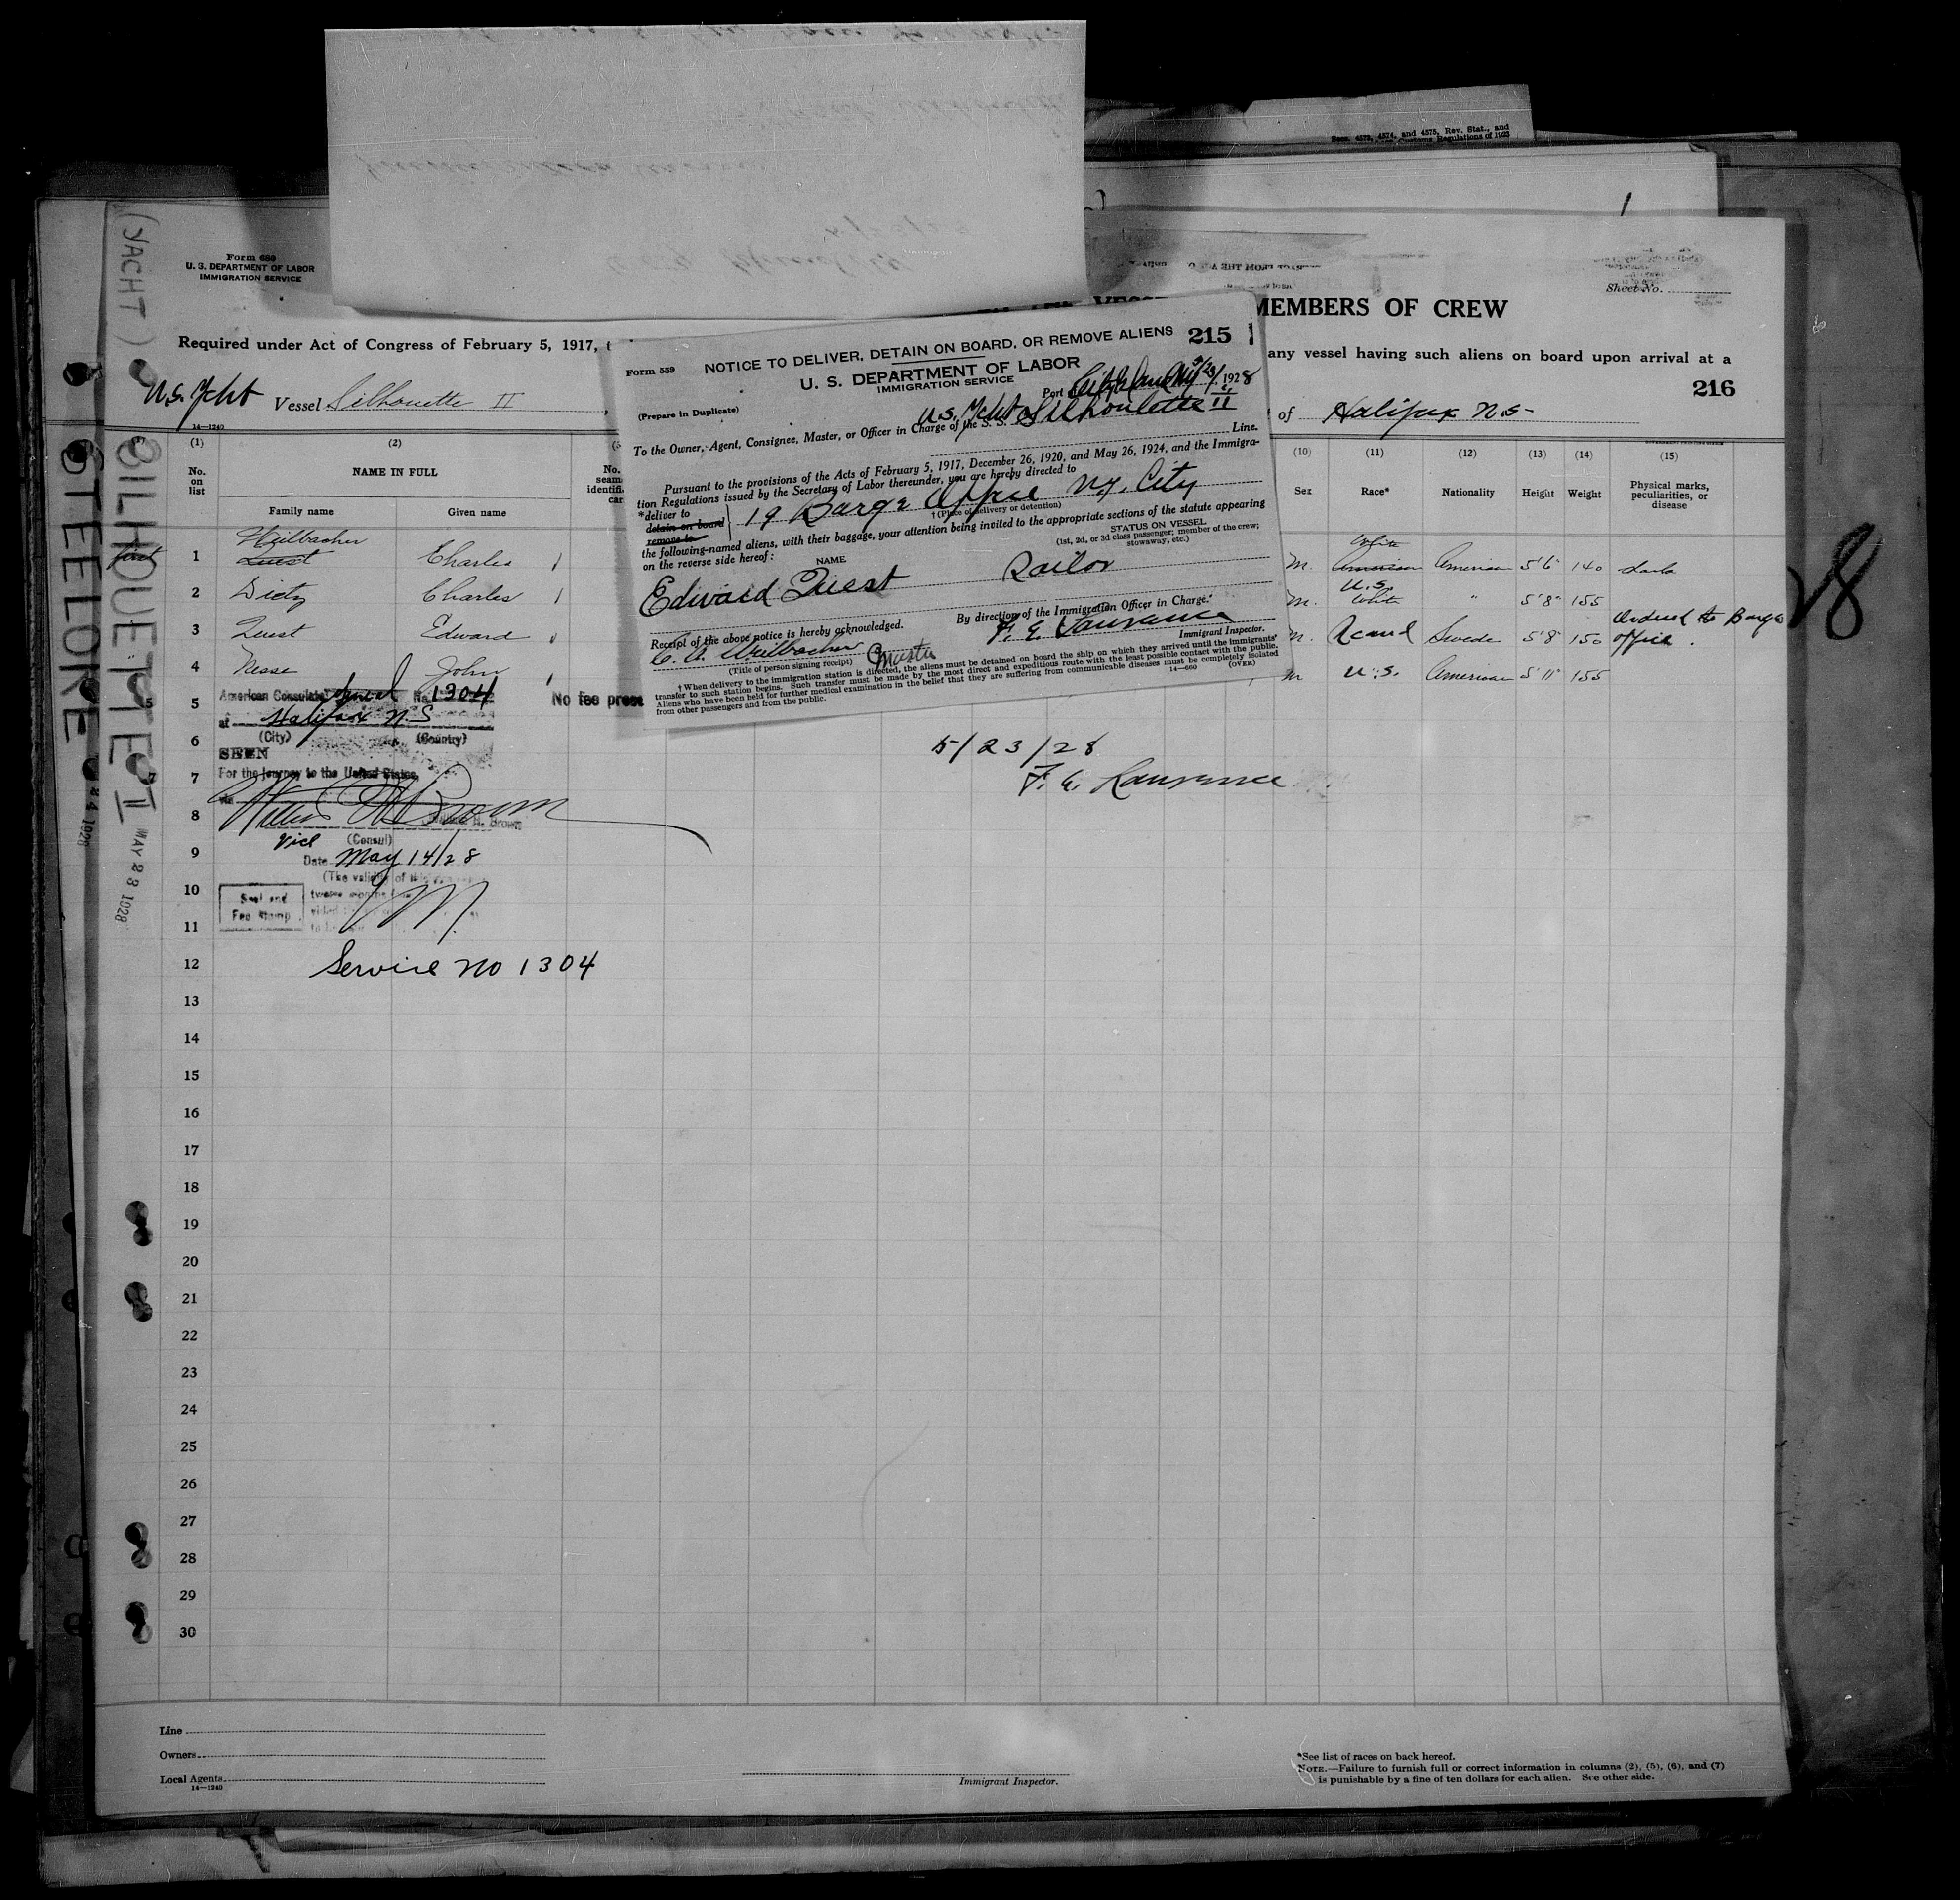 Secs. 4573, 4574, and 4575, Rev. Stat., and
Customs Regulations of 1923
(YACHT)
SILHOUETTE II
MAY 23 1928
STEELORE
Form 680
U. S. DEPARTMENT OF LABOR
IMMIGRATION SERVICE
Sheet No.
MEMBERS OF CREW
Required under Act of Congress of February 5, 1917,
any vessel having such aliens on board upon arrival at a
216
U.S. Ycht Vessel Silhouette II
of Halifax N.S.
14—1240
(1) (2) (10) (11) (12) (13) (14) (15)
No. on list
NAME IN FULL
Family name Given name
Sex Race* Nationality Height Weight Physical marks, peculiarities, or disease
first 1 Heilbacher Quest Charles M. White American American 5'6" 140
2 Dietz Charles M. U.S. White " 5'8" 155
3 Quest Edward M. Scand Swede 5'8" 150 Ordered to Barge office.
4 John M U.S. American 5'11" 155
Form 559
NOTICE TO DELIVER, DETAIN ON BOARD, OR REMOVE ALIENS 215
U. S. DEPARTMENT OF LABOR
IMMIGRATION SERVICE
Port 5/23/, 1928
(Prepare in Duplicate)
U.S. Ycht Silhoulette II
To the Owner, Agent, Consignee, Master, or Officer in Charge of the S. S.
Line.
Pursuant to the provisions of the Acts of February 5, 1917, December 26, 1920, and May 26, 1924, and the Immigra-
tion Regulations issued by the Secretary of Labor thereunder, you are hereby directed to
*deliver to
detain on board
remove to
19 Barge Office N.Y. City
†(Place of delivery or detention)
the following-named aliens, with their baggage, your attention being invited to the appropriate sections of the statute appearing
on the reverse side hereof:
NAME
STATUS ON VESSEL
(1st, 2d, or 3d class passenger; member of the crew;
stowaway, etc.)
Edward Quest Sailor
By direction of the Immigration Officer in Charge.
Receipt of the above notice is hereby acknowledged.
F. E. Laurance
Immigrant Inspector.
C. A. Heilbacher Master
(Title of person signing receipt)
†When delivery to the immigration station is directed, the aliens must be detained on board the ship on which they arrived until the immigrants'
transfer to such station begins. Such transfer must be made by the most direct and expeditious route with the least possible contact with the public.
Aliens who have been held for further medical examination in the belief that they are suffering from communicable diseases must be completely isolated
from other passengers and from the public.
14—660
(OVER)
American Consulate General No. 1304
No fee
at Halifax N.S
(City) (Country)
SEEN
For the journey to the United States,
Vice (Consul)
Date May 14/28
(The validity of
twelve months
Seal and
Fee Stamp
Service No 1304
5/23/28
F. E. Laurance
28
5
6
7
8
9
10
11
12
13
14
15
16
17
18
19
20
21
22
23
24
25
26
27
28
29
30
Line
Owners
Local Agents
14—1240
Immigrant Inspector.
*See list of races on back hereof.
NOTE.—Failure to furnish full or correct information in columns (2), (5), (6), and (7)
is punishable by a fine of ten dollars for each alien. See other side.